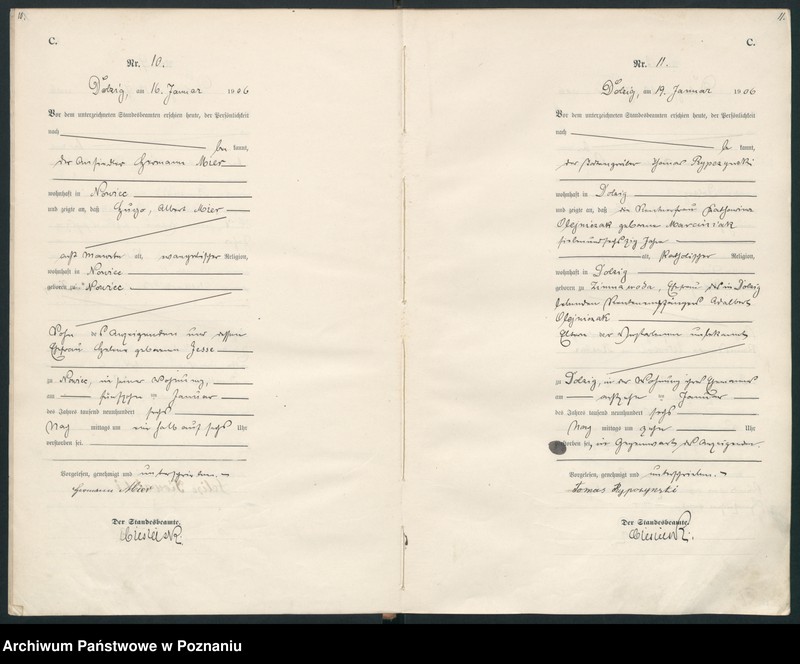 10.
C.
Nr. 10.
Dolzig, am 16. Januar 1906
Vor dem unterzeichneten Standesbeamten erschien heute, der Persönlichkeit
nach
be kannt,
der Ansiedler Hermann Mier
wohnhaft in Nowiec
und zeigte an, daß Hugo, Albert Mier
acht Monate alt, evangelischer Religion,
wohnhaft in Nowiec
geboren zu Nowiec
Sohn des Anzeigenden und dessen
Ehefrau Helene geborenen Jesse
zu Nowiec, in seiner Wohnung,
am fünfzehn ten Januar
des Jahres tausend neunhundert sechs
Nach mittags um ein halb auf sechs Uhr
verstorben sei.
Vorgelesen, genehmigt und unterschrieben.
Hermann Mier
Der Standesbeamte.
11.
C.
Nr. 11.
Dolzig, am 19. Januar 1906
Vor dem unterzeichneten Standesbeamten erschien heute, der Persönlichkeit
nach
be kannt,
der Todtengräber Thomas Rypczynski
wohnhaft in Dolzig
und zeigte an, daß die Rentnerfrau Katharina
Olejniczak geborene Marciniak
siebenundsechszig Jahre
alt, Katholischer Religion,
wohnhaft in Dolzig
geboren zu Zimnawoda, Ehefrau des in Dolzig
lebenden Rentenempfängers Adalbert
Olejniczak
Eltern der Verstorbenen unbekannt
zu Dolzig, in der Wohnung ihres Ehemannes
am achtzehn ten Januar
des Jahres tausend neunhundert sechs
Nach mittags um zehn Uhr
verstorben sei, in Gegenwart des Anzeigenden.
Vorgelesen, genehmigt und unterschrieben.
Tomas Rypczynski
Der Standesbeamte.
Archiwum Państwowe w Poznaniu